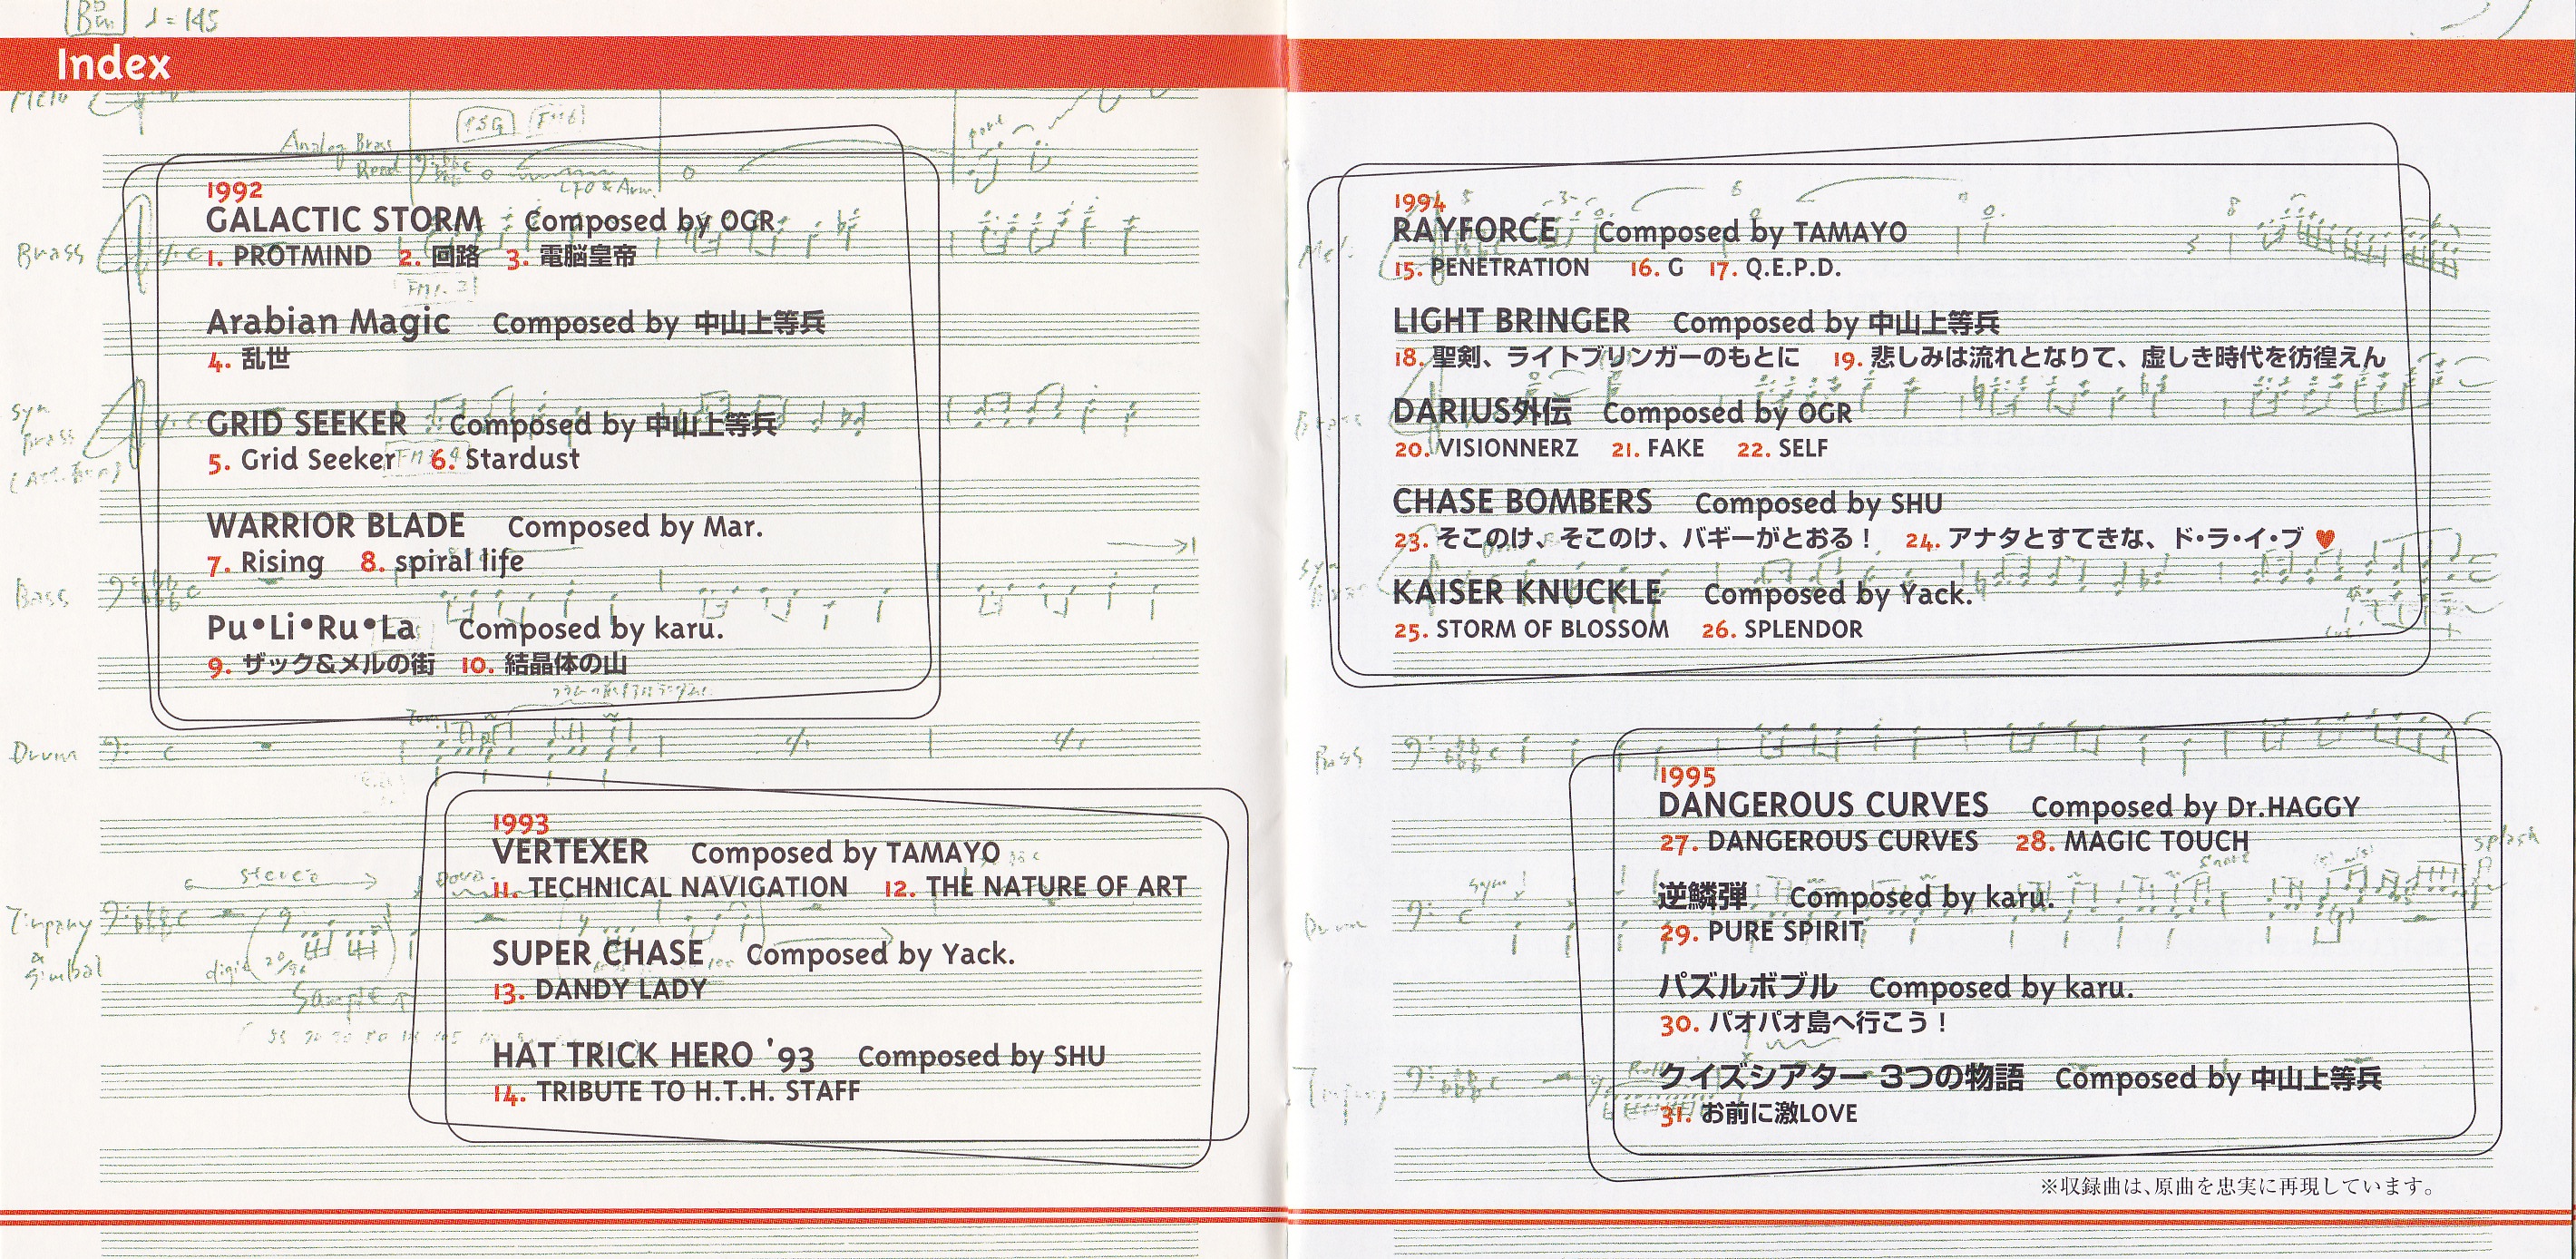 Bm ♩=145
Index
Melo
PSG FM6
Analog Brass
Reed
LFO & Arm.
1992
GALACTIC STORM Composed by OGR
1. PROTMIND 2. 回路 3. 電脳皇帝
Brass
Arabian Magic Composed by 中山上等兵
4. 乱世
Syn
Brass
GRID SEEKER Composed by 中山上等兵
5. Grid Seeker 6. Stardust
WARRIOR BLADE Composed by Mar.
7. Rising 8. spiral life
Bass
Pu•Li•Ru•La Composed by karu.
9. ザック&メルの街 10. 結晶体の山
Drum
1993
VERTEXER Composed by TAMAYO
11. TECHNICAL NAVIGATION 12. THE NATURE OF ART
stereo
Timpany
&
Simbal
SUPER CHASE Composed by Yack.
13. DANDY LADY
Sample
HAT TRICK HERO '93 Composed by SHU
14. TRIBUTE TO H.T.H. STAFF
1994
RAYFORCE Composed by TAMAYO
15. PENETRATION 16. G 17. Q.E.P.D.
LIGHT BRINGER Composed by 中山上等兵
18. 聖剣、ライトブリンガーのもとに 19. 悲しみは流れとなりて、虚しき時代を彷徨えん
DARIUS外伝 Composed by OGR
20. VISIONNERZ 21. FAKE 22. SELF
Brass
CHASE BOMBERS Composed by SHU
23. そこのけ、そこのけ、バギーがとおる! 24. アナタとすてきな、ド・ラ・イ・ブ ♥
KAISER KNUCKLE Composed by Yack.
25. STORM OF BLOSSOM 26. SPLENDOR
Bass
1995
DANGEROUS CURVES Composed by Dr.HAGGY
27. DANGEROUS CURVES 28. MAGIC TOUCH
splash
Snare
逆鱗弾 Composed by karu.
29. PURE SPIRIT
Drum
パズルボブル Composed by karu.
30. パオパオ島へ行こう!
クイズシアター 3つの物語 Composed by 中山上等兵
31. お前に激LOVE
Timpany
※収録曲は、原曲を忠実に再現しています。